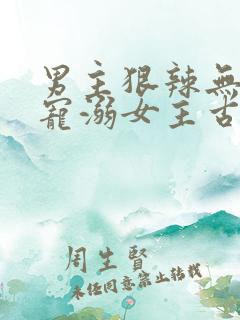 男主狠辣無
寵溺女主古
周生賢
未经同意禁止转载